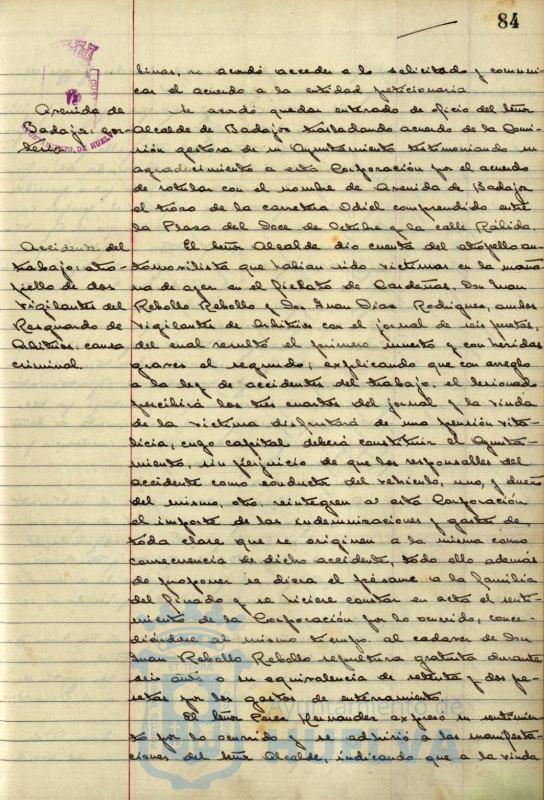 84
binas, se acordó acceder a lo solicitado y comuni-
car el acuerdo a la entidad peticionaria
Avenida de
Badajoz: cor-
tesía
Se acordó quedar enterado de oficio del Señor
Alcalde de Badajoz trasladando acuerdo de la Comi-
sión gestora de su Ayuntamiento testimoniando su
agradecimiento a esta Corporación por el acuerdo
de rotular con el nombre de Avenida de Badajoz
el trozo de la carretera Odiel comprendido entre
la Plaza del Doce de Octubre y la calle Rábida.
Accidente del
trabajo: atro-
pello de dos
vigilantes del
Resguardo de
Arbitrios: causa
criminal.
El Señor Alcalde dio cuenta del atropello au-
tomovilista que habian sido victimas en la maña-
na de ayer en el Fielato de Cardeñas, Don Juan
Rebollo Rebollo y Don Juan Diaz Rodriguez, ambos
vigilantes de Arbitrios con el jornal de seis pesetas,
del cual resultó el primero muerto y con heridas
graves el segundo; explicando que con arreglo
a la ley de accidentes del trabajo, el lesionado
percibirá los tres cuartos del jornal y la viuda
de la victima disfrutará de una pensión vita-
licia, cuyo capital deberá constituir el Ayunta-
miento, sin perjuicio de que los responsables del
accidente como conductor del vehiculo, uno, y dueño
del mismo, otro, reintegren a esta Corporación
el importe de las indemnizaciones y gastos de
toda clase que se originen a la misma como
consecuencia de dicho accidente, todo ello además
de proponer se diera el pésame a la familia
del finado y se hiciere constar en acta el senti-
miento de la Corporación por lo ocurrido, conce-
diéndose al mismo tiempo al cadaver de Don
Juan Rebollo Rebollo sepultura gratuita durante
seis años o su equivalencia de setenta y dos pe-
setas por los gastos de enterramiento.
El Señor Perez Hernandez expresó su sentimien-
to por lo ocurrido y se adhirió a las manifesta-
ciones del Señor Alcalde, indicando que a la viuda
Ayuntamiento de
HUELVA